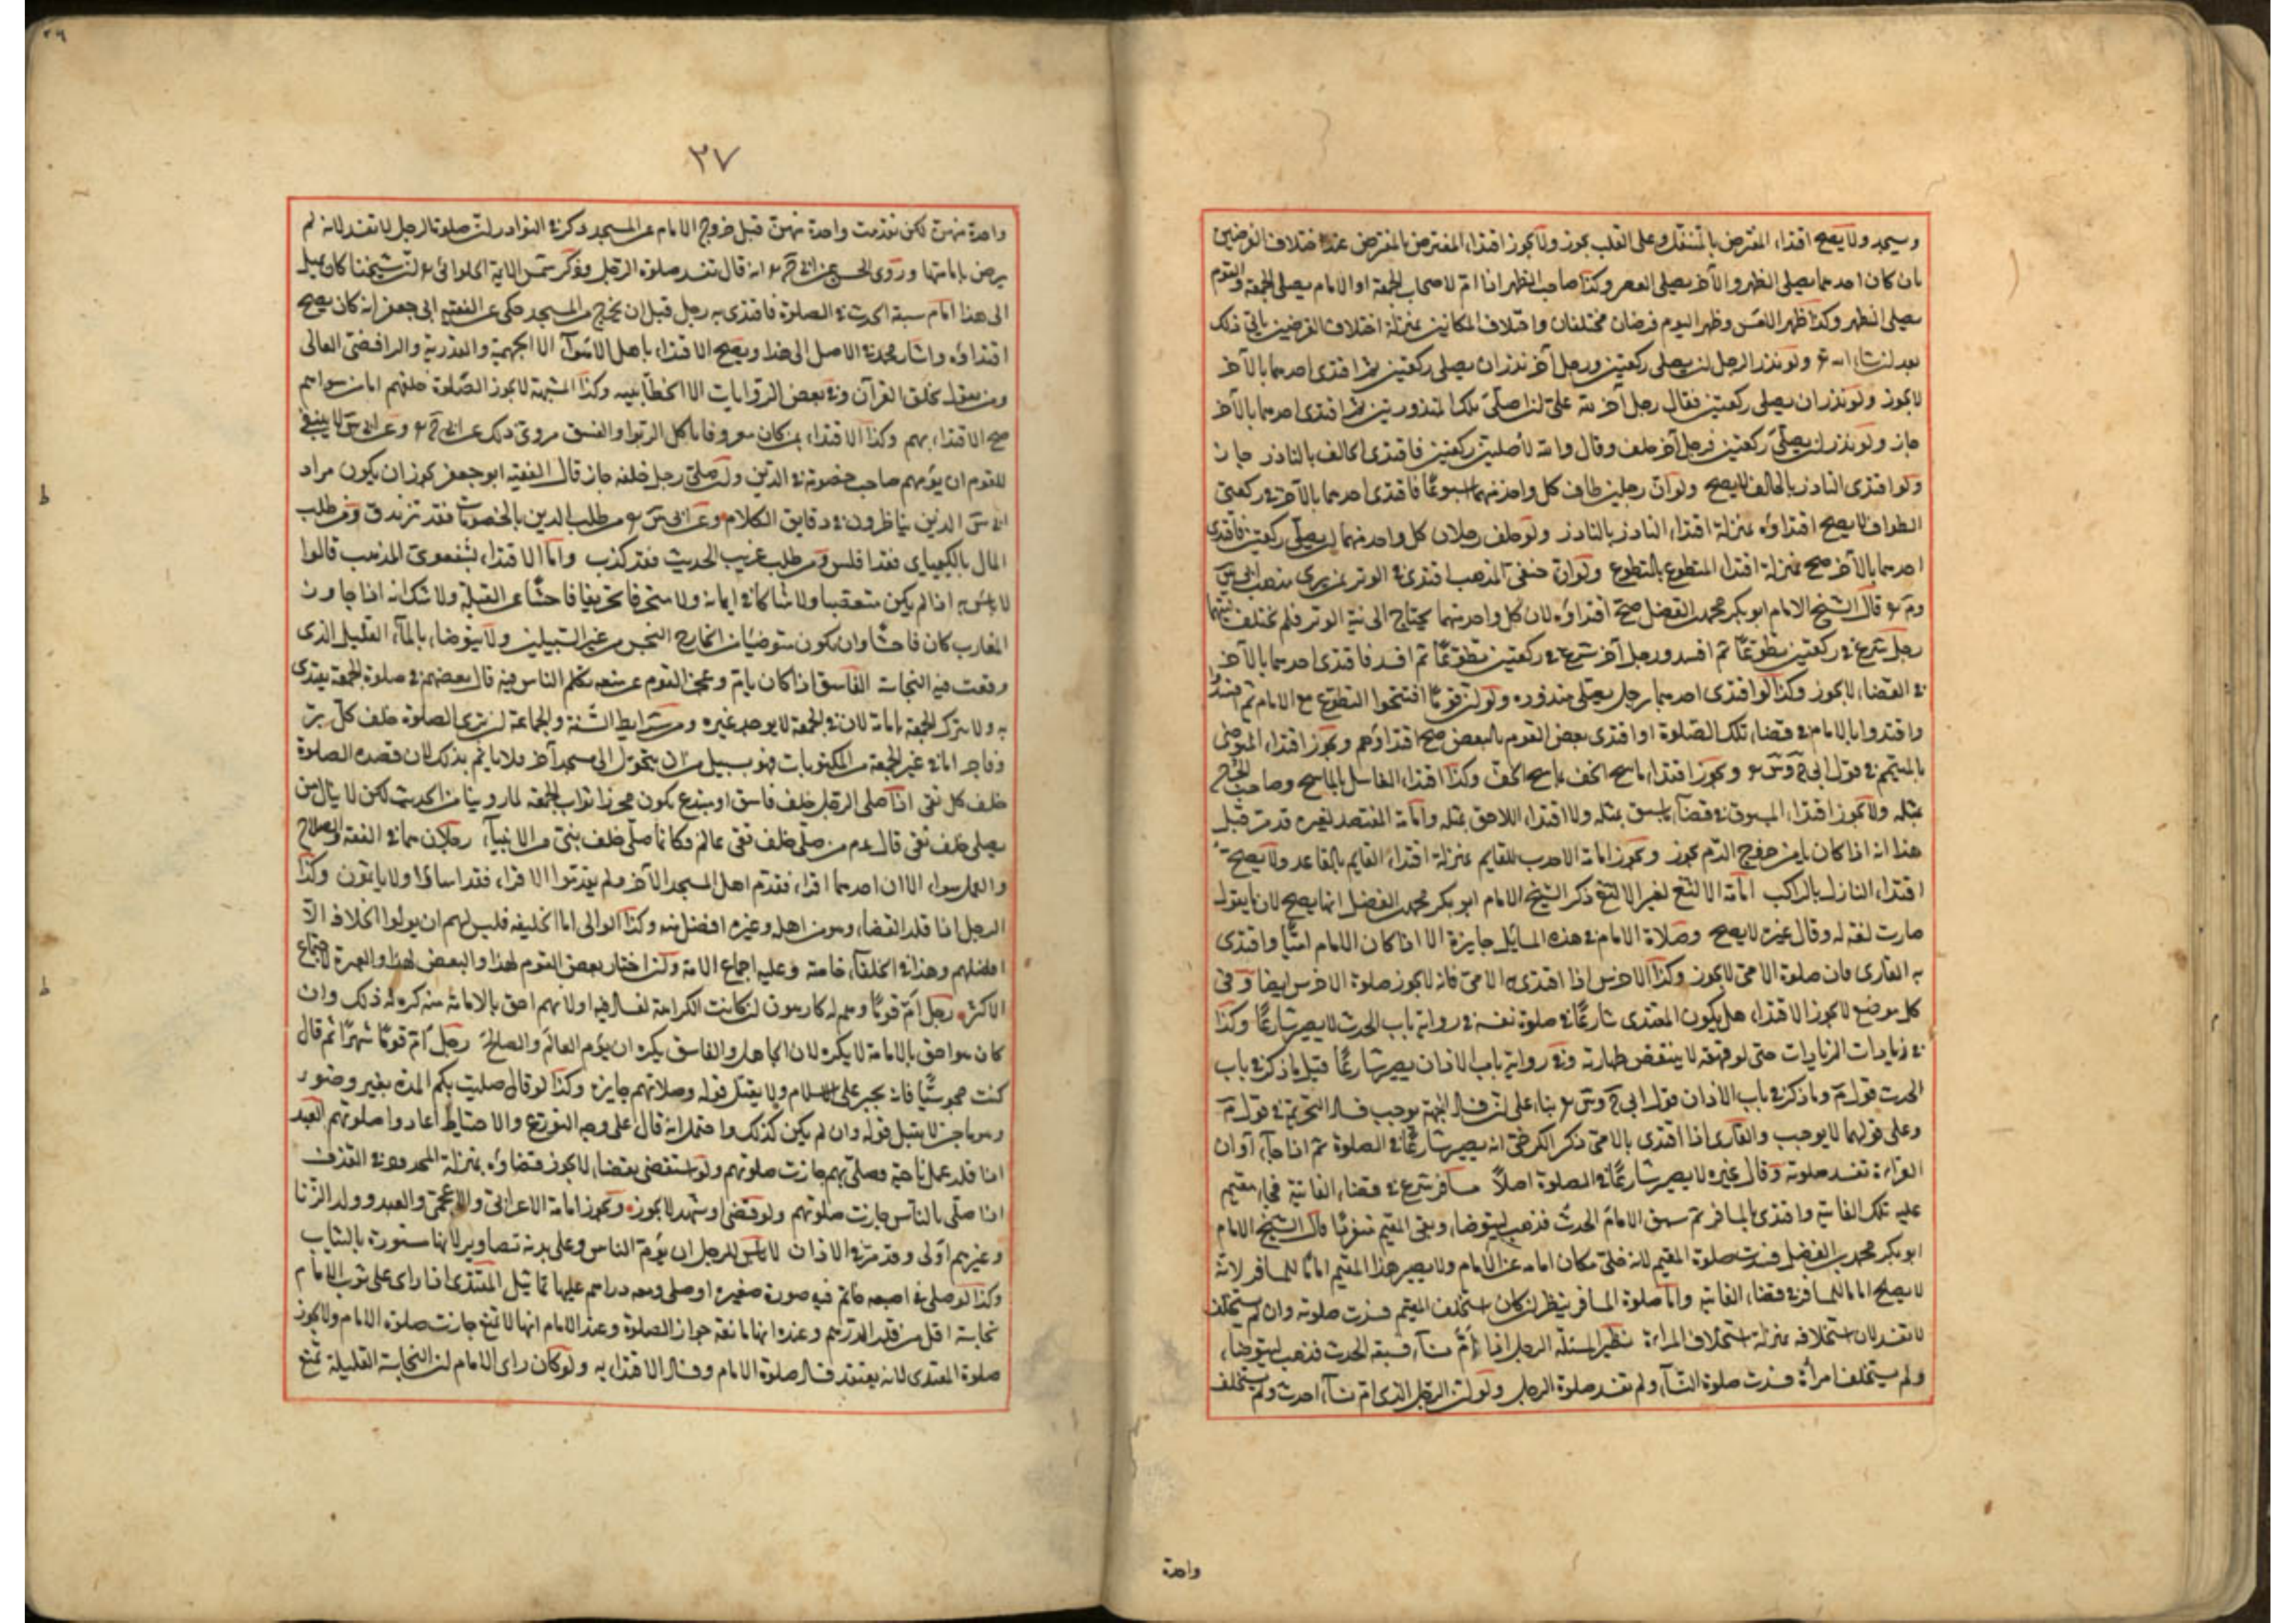 ويسجد ولا يصح اقتداء المفترض بالمتنفل وعلى القلب يجوز ولا يجوز اقتداء المفترض بالمفترض عند اختلاف الفرضين
بان كان احدهما يصلى الظهر والآخر يصلى العصر وكذا صاحب الظهر اذا ام لاصحاب الجمعة او الامام يصلى الجمعة والقوم
يصلى الظهر وكذا ظهر الامس وظهر اليوم فرضان مختلفان واختلاف المكانين بمنزلة اختلاف الفرضين ياتى ذلك
بعد ان شاء الله ولو نذر الرجل ان يصلى ركعتين ورجل آخر نذر ان يصلى ركعتين ثم اقتدى احدهما بالآخر
لا يجوز ولو نذر ان يصلى ركعتين فقال رجل آخر لله على ان اصلى تلك المنذورتين ثم اقتدى احدهما بالآخر
جاز ولو نذر ان يصلى ركعتين فرجل آخر حلف وقال والله لاصلين ركعتين فاقتدى الحالف بالناذر جاز
ولو اقتدى الناذر بالحالف لا يصح ولو ان رجلين طاف كل واحد منهما اسبوعا فاقتدى احدهما بالآخر فى ركعتى
الطواف لا يصح اقتداؤه بمنزلة اقتداء الناذر بالناذر ولو حلف رجلان كل واحد منهما ان يصلى ركعتين فاقتدى
احدهما بالآخر صح بمنزلة اقتداء المتطوع بالتطوع ولو ان حنفى المذهب اقتدى فى الوتر بمن يرى مذهب ابى س
وم قال الشيخ الامام ابو بكر محمد بن الفضل صح اقتداؤه لان كل واحد منهما يحتاج الى نية الوتر فلم يختلف نيتهما
رجل شرع فى ركعتين تطوعا ثم افسد ورجل آخر شرع فى ركعتين تطوعا ثم افسد فاقتدى احدهما بالآخر
فى القضاء لا يجوز وكذا لو اقتدى احدهما برجل يصلى منذوره ولو ان قوما افتتحوا التطوع مع الامام ثم افسدوا
واقتدوا بالامام فى قضاء تلك الصلوة او اقتدى بعض القوم بالبعض صح اقتداؤهم ويجوز اقتداء المتوضى
بالمتيمم فى قول ابى ح وس ويجوز اقتداء ماسح الخف بماسح الخف وكذا اقتداء الغاسل بالماسح وصاحب الجرح
بمثله ولا يجوز اقتداء المسبوق فى قضاء ما سبق بمثله ولا اقتداء اللاحق بمثله وامامة المفتصد لغيره قد مر قبل
هذا انه اذا كان يامن خروج الدم يجوز ويجوز امامة الاحدب للقايم بمنزلة اقتداء القايم بالقاعد ولا يصح
اقتداء النازل بالراكب امامة الالثغ لغير الالثغ ذكر الشيخ الامام ابو بكر محمد بن الفضل انها يصح لان ما يقول
صارت لغة له وقال غيره لا يصح وصلاة الامام فى هذه المسايل جايزة الا اذا كان الامام اميا واقتدى
به القارى فان صلوة الامى لا يجوز وكذا الاخرس اذا اقتدى به الامى فانه لا يجوز صلوة الاخرس ايضا وفى
كل موضع لا يجوز الاقتداء هل يكون المقتدى شارعا فى صلوة نفسه فى رواية باب الحدث لا يصير شارعا وكذا
فى زيادات الزيادات حتى لو قهقه لا ينتقض طهارته وفى رواية باب الاذان يصير شارعا قيل ما ذكر فى باب
الحدث قول م وما ذكر فى باب الاذان قول ابى ح وس بناء على ان فساد الجهة يوجب فساد التحريمة فى قول م
وعلى قولهما لا يوجب والقارى اذا اقتدى بالامى ذكر الكرخى انه يصير شارعا فى الصلوة ثم اذا جاء اوان
القراءة تفسد صلوته وقال غيره لا يصير شارعا فى الصلوة اصلا مسافر شرع فى قضاء الفائتة فجاء مقيم
عليه تلك الفائتة واقتدى بالمسافر ثم سبق الامام الحدث فذهب ليتوضا وبقى المقيم منفردا قال الشيخ الامام
ابو بكر محمد بن الفضل فسدت صلوة المقيم لانه خلى مكان امامه عن الامام ولا يصير هذا المقيم اماما للمسافر لانه
لا يصلح اماما للمسافر فى قضاء الفائتة واما صلوة المسافر ينظر ان كان استخلف المقيم فسدت صلوته وان لم يستخلف
لا تفسد لان استخلافه بمنزلة استخلاف المراءة نظير المسئلة الرجل اذا ام نساء فسبقه الحدث فذهب ليتوضا
ولم يستخلف امرأة فسدت صلوة النساء ولم تفسد صلوة الرجل ولو ان الرجل الذى ام نساء احدث ولم يستخلف
واحدة
٣٧
واحدة منهن لكن تقدمت واحدة منهن قبل خروج الامام عن المسجد ذكر فى النوادر ان صلوة الرجل لا تفسد لانه لم
يرض بامامتها وروى الحسن عن ابى ح انه قال تفسد صلوة الرجل وذكر شمس الايمة الحلوائى ان شيخنا كان يميل
الى هذا امام سبقه الحدث فى الصلوة فاقتدى به رجل قبل ان يخرج من المسجد حكى عن الفقيه ابى جعفر انه كان يصح
اقتداؤه واشار محمد فى الاصل الى هذا ويصح الاقتداء باهل الاهواء الا الجهمية والقدرية والرافضى الغالى
ومن يقول بخلق القرآن وفى بعض الروايات الا الخطابيه وكذا المشبهة لا يجوز الصلوة خلفهم اما من سواهم
صح الاقتداء بهم وكذا الاقتداء بمن كان معروفا باكل الربوا والفسق مروى ذلك عن ابى ح وعن ابى س لا ينبغى
للقوم ان يؤمهم صاحب خصومة فى الدين وان صلى رجل خلفه جاز قال الفقيه ابو جعفر يجوز ان يكون مراد
ابى س الذين يناظرون فى دقايق الكلام وعن ابى س من طلب الدين بالخصومات فقد تزندق ومن طلب
المال بالكيمياى فقد افلس ومن طلب غريب الحديث فقد كذب واما الاقتداء بشفعوى المذهب قالوا
لا باس به اذا لم يكن متعصبا ولا شاكا فى ايمانه ولا منحرفا تحريفا فاحشا عن القبلة ولا شك انه اذا جاوز
المغارب كان فاحشا وان يكون متوضيا من الخارج النجس من غير السبيلين ولا يتوضا بالماء القليل الذى
وقعت فيه النجاسة الفاسق اذا كان يام وعجز القوم عن منعه تكلم الناس فيه قال بعضهم فى صلوة الجمعة يقتدى
به ولا يترك الجمعة بامامة لان فى الجمعة لا يوجد غيره ومن شرايط السنة والجماعة ان يرى الصلوة خلف كل بر
وفاجر اما فى غير الجمعة من المكتوبات فهو بسبيل من ان يتحول الى مسجد آخر ولا ياثم بذلك لان قصده الصلوة
خلف كل تقى اذا صلى الرجل خلف فاسق او مبتدع يكون محرزا ثواب الجمعة لما روينا من الحديث لكن لا ينال من
يصلى خلف تقى قال عم من صلى خلف تقى عالم فكانما صلى خلف نبى من الانبياء رجلان هما فى الفقه والصلاح
والعمر سواء الا ان احدهما اقراء فقدم اهل المسجد الآخر ولم يقدموا الاقراء فقد اساؤا ولا ياثمون وكذا
الرجل اذا قلد القضاء وهو من اهله وغيره افضل منه وكذا الوالى اما الخليفه فليس لهم ان يولوا الخلافة الا
افضلهم وهذا فى الخلفاء خاصة وعليه اجماع الامة وان اختار بعض القوم لهذا والبعض لهذا والعبرة لاجتماع
الاكثر رجل ام قوما وهم له كارهون ان كانت الكراهة لفساد فيه او لانهم احق بالامامة منه كره له ذلك وان
كان هو احق بالامامة لا يكره لان الجاهل والفاسق يكره ان يؤم العالم والصالح رجل ام قوما شهرا ثم قال
كنت مجوسيا فانه يجبر على الاسلام ولا يقبل قوله وصلاتهم جايزة وكذا لو قال صليت بكم المدة بغير وضوء
وهو ماجن لا يقبل قوله وان لم يكن كذلك واحتمل انه قال على وجه التورع والاحتياط اعادوا صلوتهم العبد
اذا قلد عمل ناحية فصلى بهم جازت صلوتهم ولو استقضى بقضاء لا يجوز قضاؤه بمنزلة المحدود فى القذف
اذا صلى بالناس جازت صلوتهم ولو قضى او شهد لا يجوز ويجوز امامة الاعرابى والاعجمى والعبد وولد الزنا
وغيرهم اولى وقد مر فى الاذان لا باس للرجل ان يؤم الناس وعلى بدنه تصاوير لانها مستورة بالثياب
وكذا لو صلى فى اصبعه خاتم فيه صورة صغيرة او صلى ومعه دراهم عليها تماثيل المقتدى اذا راى على ثوب الامام
نجاسة اقل من قدر الدرهم وعنده انها مانعة جواز الصلوة وعند الامام انها لا تمنع جازت صلوة الامام ولا يجوز
صلوة المقتدى لانه يعتقد فساد صلوة الامام وفساد الاقتداء به ولو كان راى الامام ان النجاسة القليلة تمنع